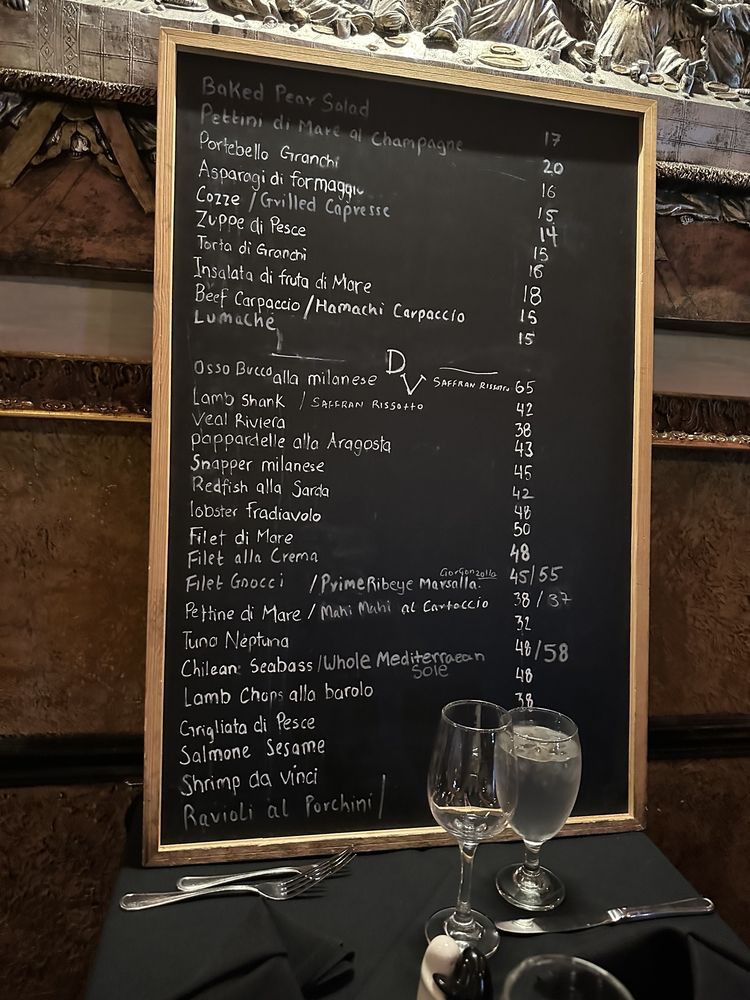 Baked Pear Salad
Pettini di Mare al Champagne 17
Portebello Granchi 20
Asparagi di formaggio 16
Cozze / Grilled Capresse 15
Zuppe di Pesce 14
Torta di Granchi 15
Insalata di fruta di Mare 16
Beef Carpaccio / Hamachi Carpaccio 18
Lumache 15
15
DV
Osso Bucco alla milanese SAFFRAN RISSOTTO 65
Lamb shank / SAFFRAN RISSOTTO 42
Veal Riviera 38
pappardelle alla Aragosta 43
Snapper milanese 45
Redfish alla Sarda 42
lobster fradiavolo 48
Filet di Mare 50
Filet alla Crema 48
Filet Gnocci / Prime Ribeye Marsalla GorGonzolla 45/55
Pettine di Mare / Mahi Mahi al Cartoccio 38/37
Tuna Neptuna 32
Chilean Seabass / Whole Mediterraean Sole 48/58
Lamb Chops alla barolo 48
Grigliata di Pesce 38
Salmone Sesame
Shrimp da vinci
Ravioli al Porchini /